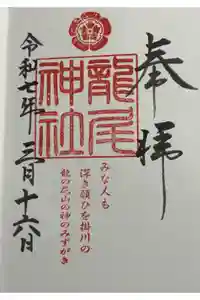 奉拝
龍尾神社
みな人も
深き願ひを掛川の
龍の尾山の神のみずがき
令和七年三月十六日